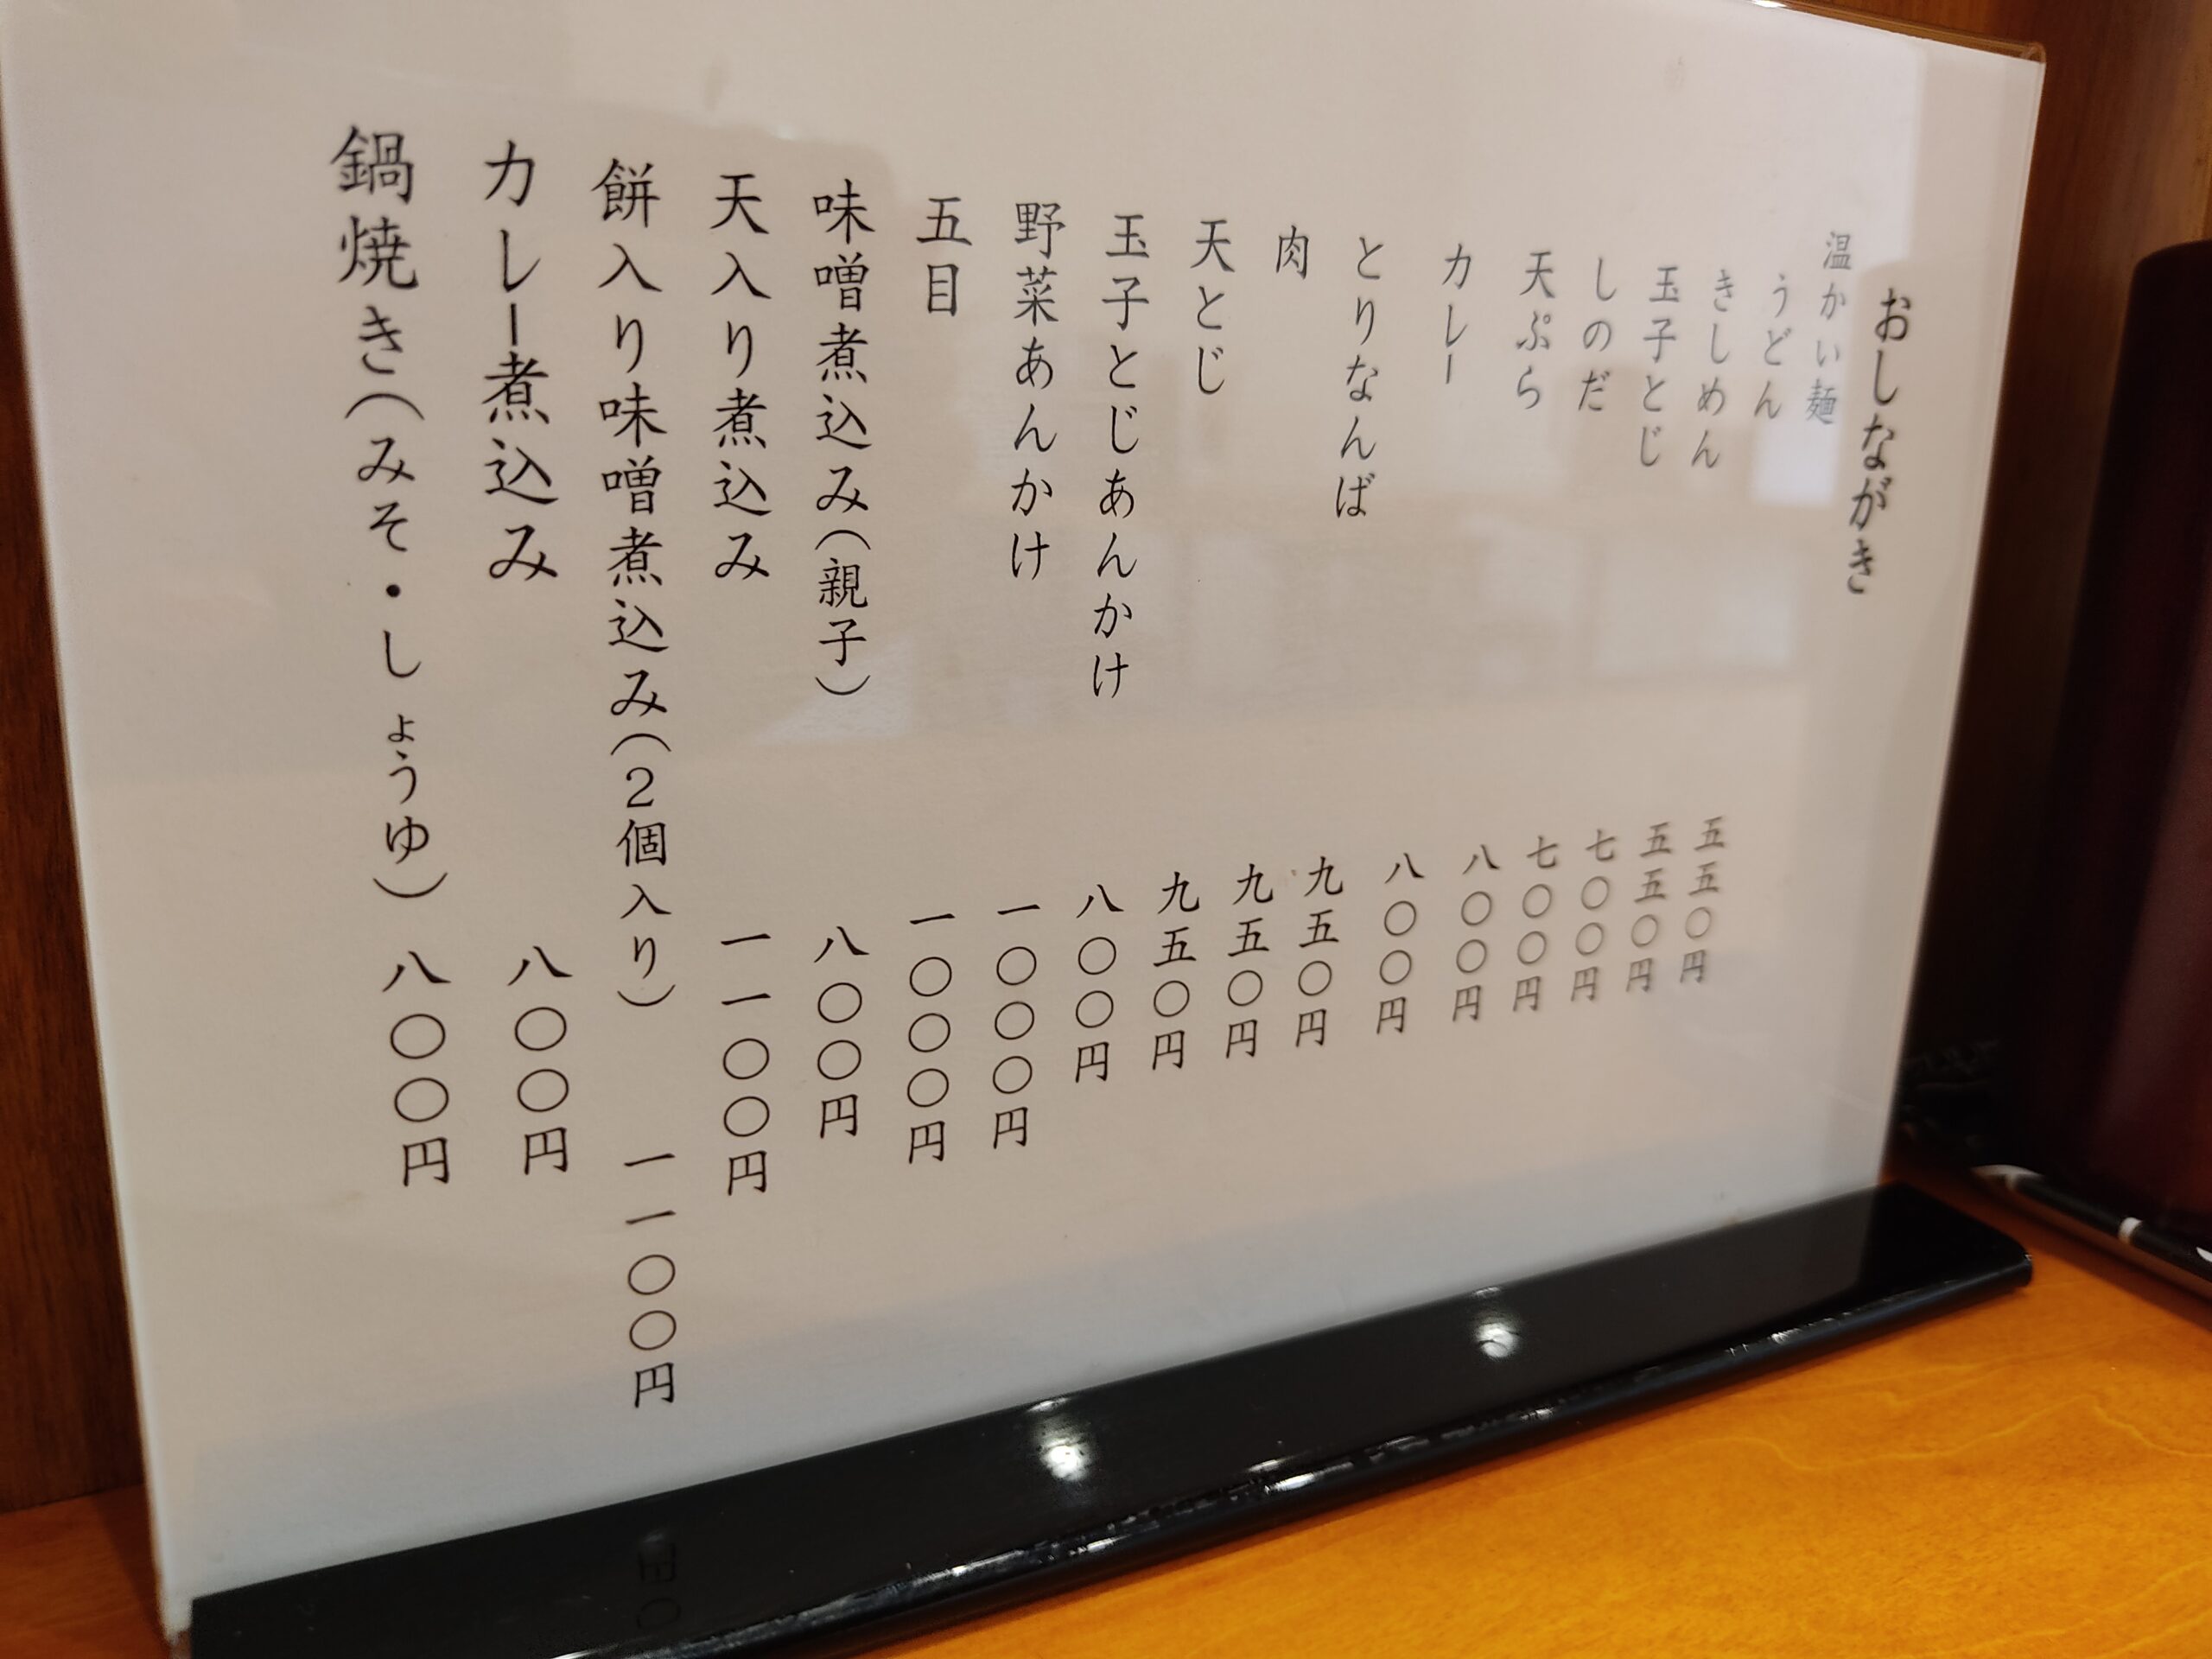 おしながき
温かい麺
うどん 五五〇円
きしめん 五五〇円
玉子とじ 七〇〇円
しのだ 七〇〇円
天ぷら 八〇〇円
カレー 八〇〇円
とりなんば 九五〇円
肉 九五〇円
天とじ 九五〇円
玉子とじあんかけ 八〇〇円
野菜あんかけ 一〇〇〇円
五目 一〇〇〇円
味噌煮込み(親子) 八〇〇円
天入り煮込み 一一〇〇円
餅入り味噌煮込み(2個入り) 一一〇〇円
カレー煮込み 八〇〇円
鍋焼き(みそ・しょうゆ) 八〇〇円